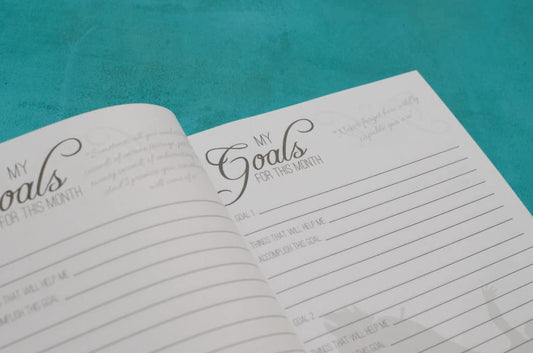 MY
Goals
FOR THIS MONTH
THINGS THAT WILL HELP ME
ACCOMPLISH THIS GOAL:
MY
Goals
FOR THIS MONTH
"Never forget how wildly
capable you are."
GOAL 1
THINGS THAT WILL HELP ME
ACCOMPLISH THIS GOAL:
GOAL 2
THINGS THAT WILL HELP ME
ACCOMPLISH THIS GOAL: